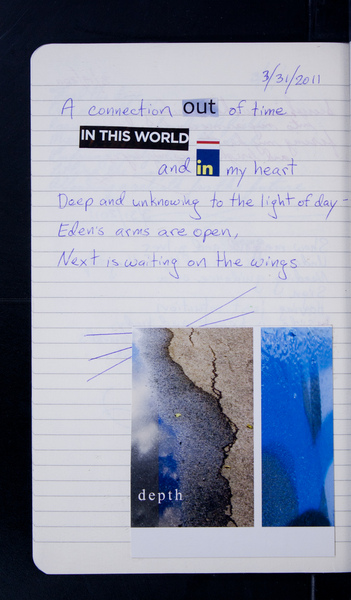 3/31/2011
A connection out of time
IN THIS WORLD
and in my heart
Deep and unknowing to the light of day -
Eden's arms are open,
Next is waiting on the wings
depth